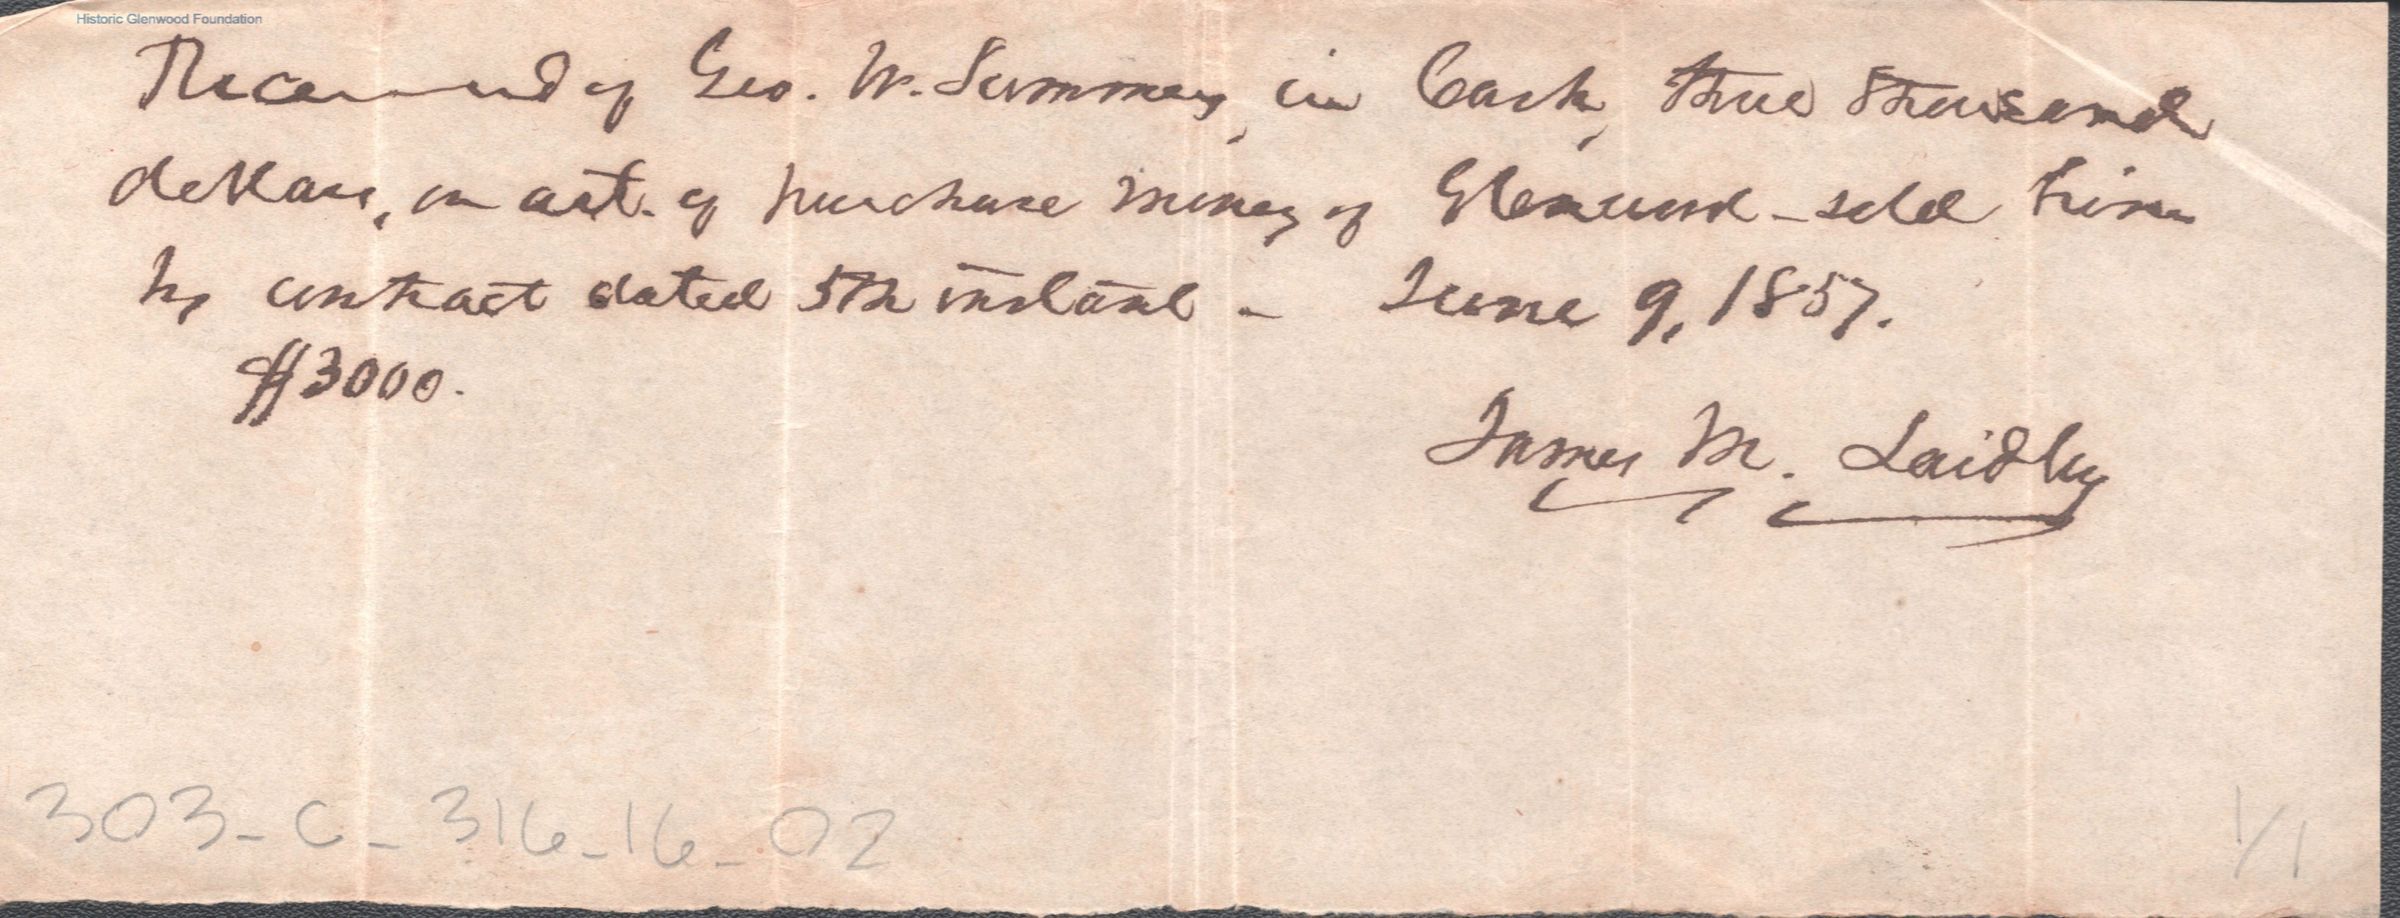 Historic Glenwood Foundation
Received of Geo. W. Summers, in Cash, three thousand
dollars, on act. of purchase money of Glenwood - sold him
by contract dated 5th instant - June 9, 1857.
$3000.
James M. Laidley
303-C-316-16-02
1/1